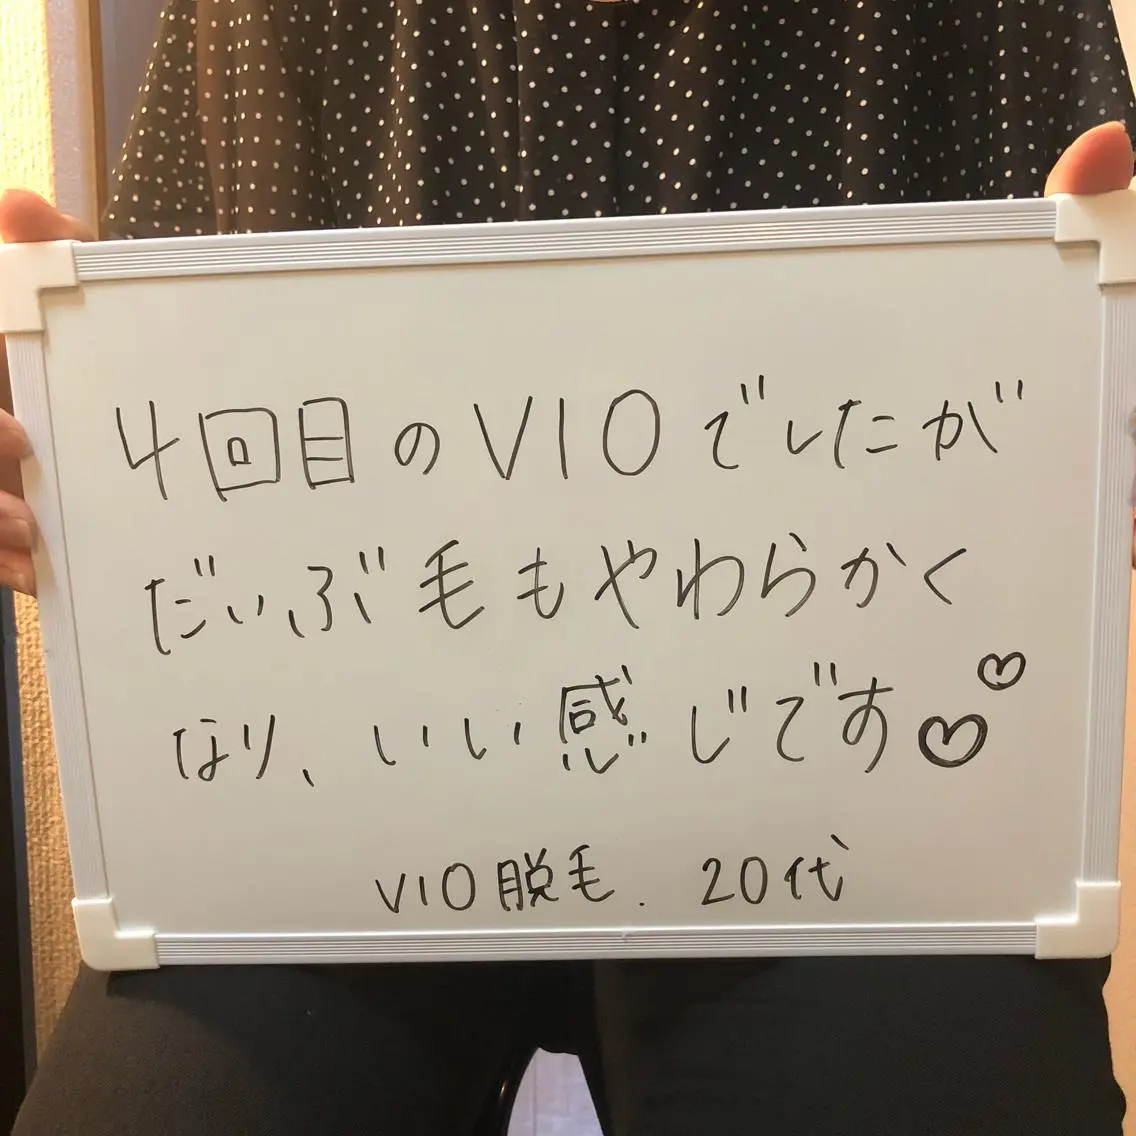 4回目のVIOでしたが
だいぶ毛もやわらかく
なり、いい感じです♡♡
VIO脱毛. 20代